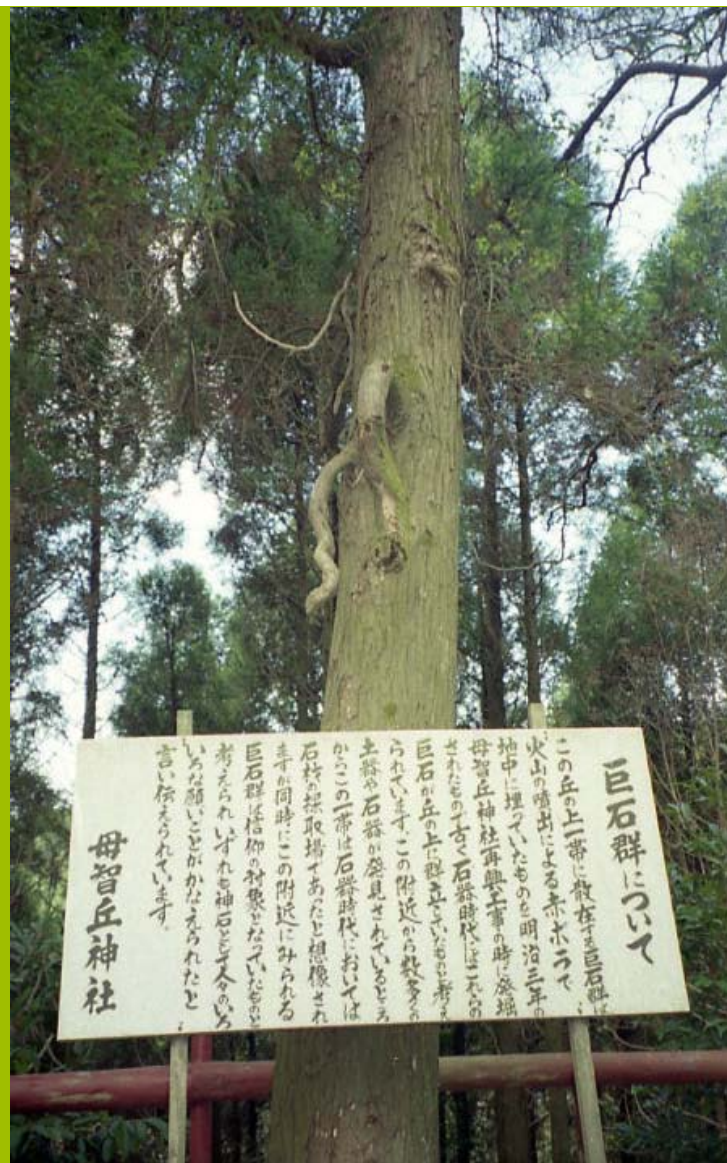 巨石群について
この丘の上一帯に散在する巨石群は
火山の噴出による赤ボラで
地中に埋っていたものを明治三年の
母智丘神社再興工事の時に発堀
されたもので古く石器時代にはこれらの
巨石が丘の上に群立していたものと考え
られています。この附近から数多くの
土器や石器が発見されているところ
からこの一帯は石器時代においては
石材の採取場であったと想像され
ますが同時にこの附近にみられる
巨石群は信仰の対象となっていたものと
考えられいずれも神石として人々のいろ
いろな願いごとがかなえられたと
言い伝えられています。
母智丘神社